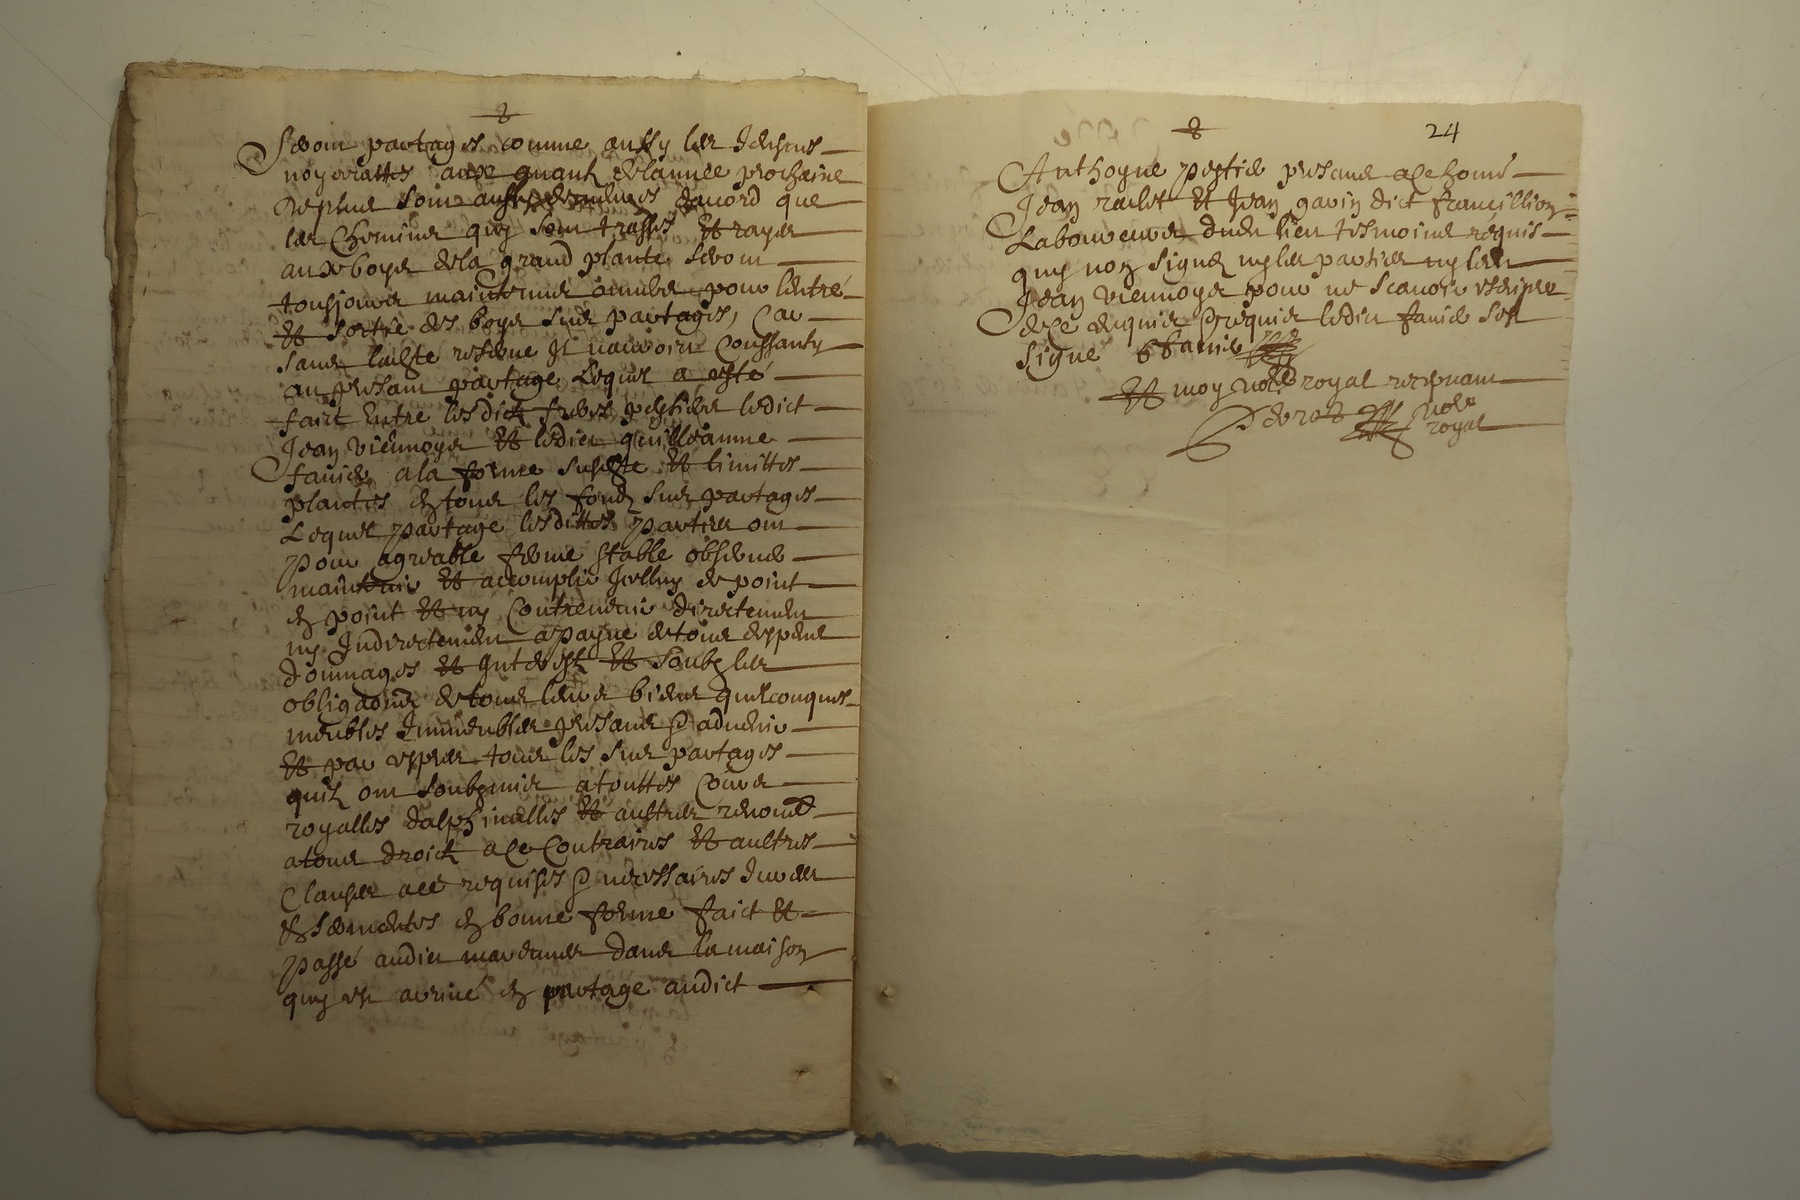 Seront partages comme aussy les
noyerattes avec de lannee prochaine
de plus sont aussy daccord que
les chemins quy sont trasses et rayes
aux boys de la grand plante seront
tousjours maintenus pour lentre
et sortie des boys sus partages, Car
sans laditte reserve Ils nauroint Conssanty
au presant partage Lequel a esté
faict entre lesdicts freres ledict
Jean viennoys et ledict guilleaume
faniel a la forme susditte et limittes
plantes en tous les fonds sus partages
Lequel partage lesdittes parties ont
pour agreable ferme stable observer
maintenir et accomplir Jcelluy de point
en point et ny Contrevenir directement
ny Indirectement a payne de tous despens
domages et Interests et soubz les
obligaons de tous leurs biens quelconques
meubles Immeubles presans & advenir
et par expres tous les sus partages
quilz ont soubzmis a touttes Cours
royalles dalphinalles et aultres
a tous droictz a ce Contraires et aultres
Clauses a ce requises & necessaires
en bonne forme faict et
Passé audict dans la maison
quy est arrivé en partage audict
24
Anthoyne presans a ce
Jean raclet et Jean gavin dict francillion
Laboureurs dudit lieu tesmoins requis
quy nont signé ny les parties ny ledit
Jean viennoys pour ne scavoir escripre
de ce enquis & requis ledict faniel sest
signé G faniel
et moy nore royal recepvant
nore
royal